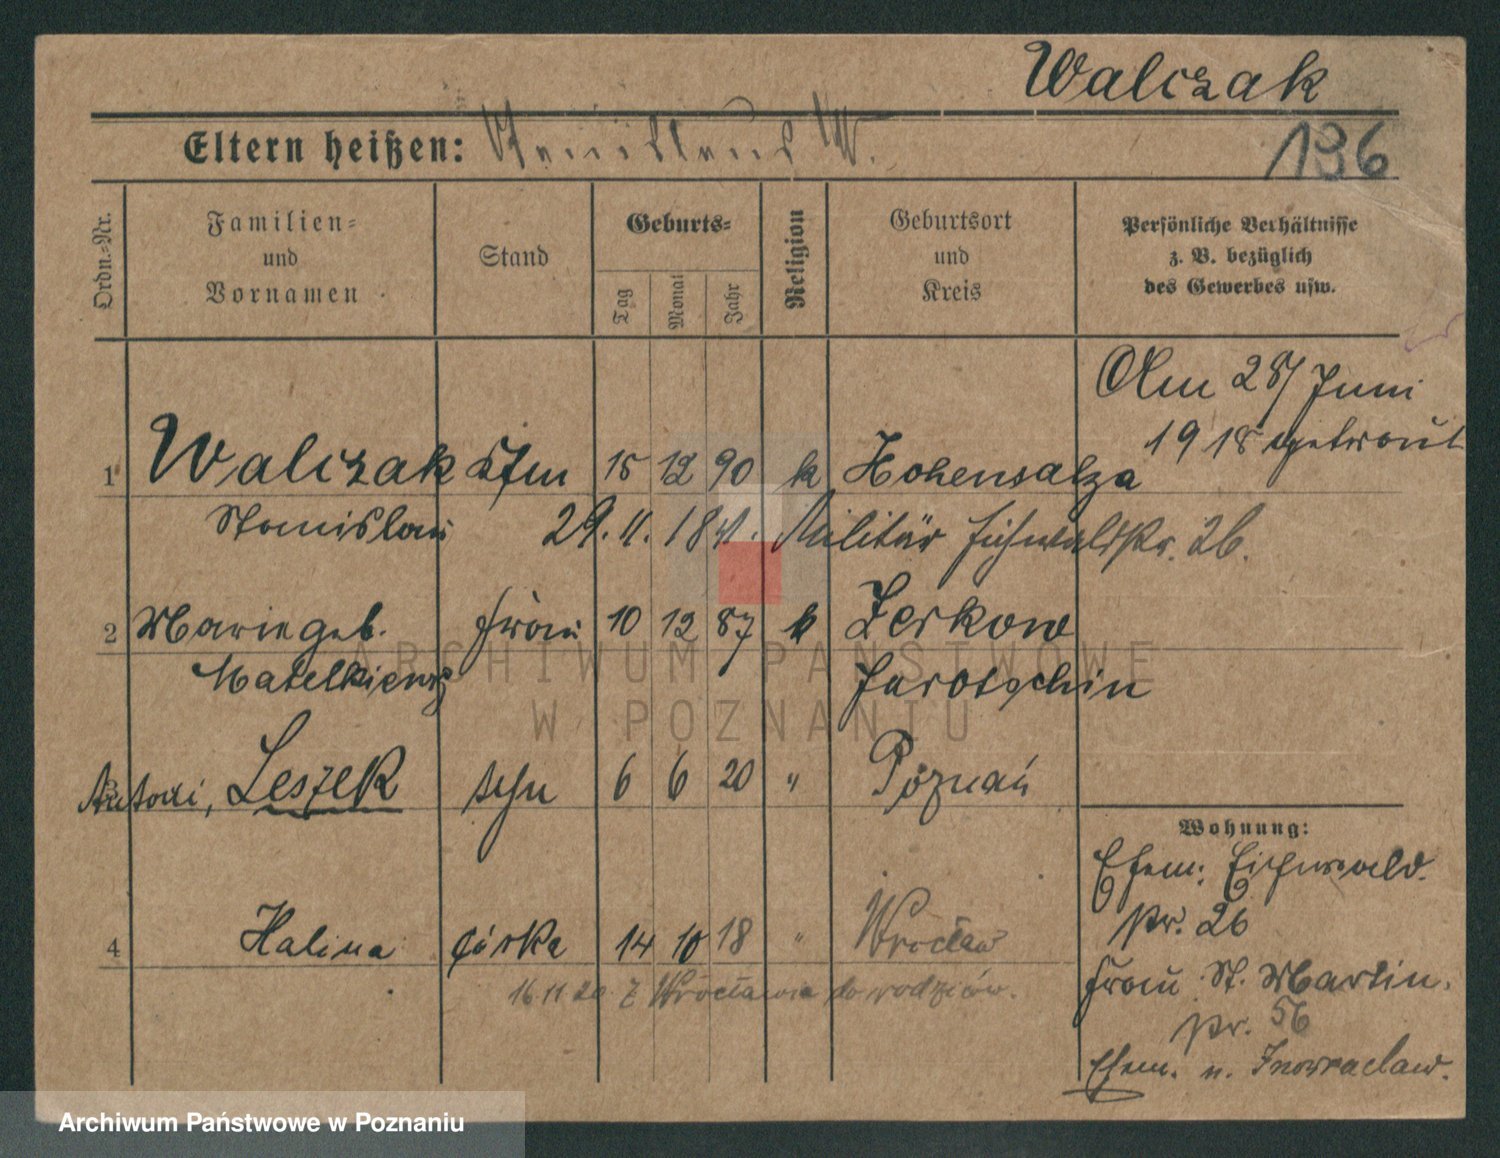 Walczak
Eltern heißen: Stanislaus W.
136
Ordn.=Nr.
Familien=
und
Vornamen
Stand
Geburts=
Tag
Monat
Jahr
Religion
Geburtsort
und
Kreis
Persönliche Verhältnisse
z. B. bezüglich
des Gewerbes usw.
Am 28/Juni
1918 getraut
1 Walczak 15 12 90 k Hohensalza
Stanislau 29. 11. 18 Militär Eichwaldstr. 26.
2 Marie geb. Frau 10 12 87 k Zerkow
Matelkiewicz Jarotschin
Antoni, Leszek sohn 6 6 20 " Poznań
Wohnung:
Ehem: Eichwald.
str. 26
4 Halina córka 14 10 18 " Wrocław
Frau St. Martin.
16.11 20 Z Wrocławia do rodziców.
str. 56
Ehem. n. Inowraclaw.
ARCHIWUM PAŃSTWOWE
W POZNANIU
Archiwum Państwowe w Poznaniu